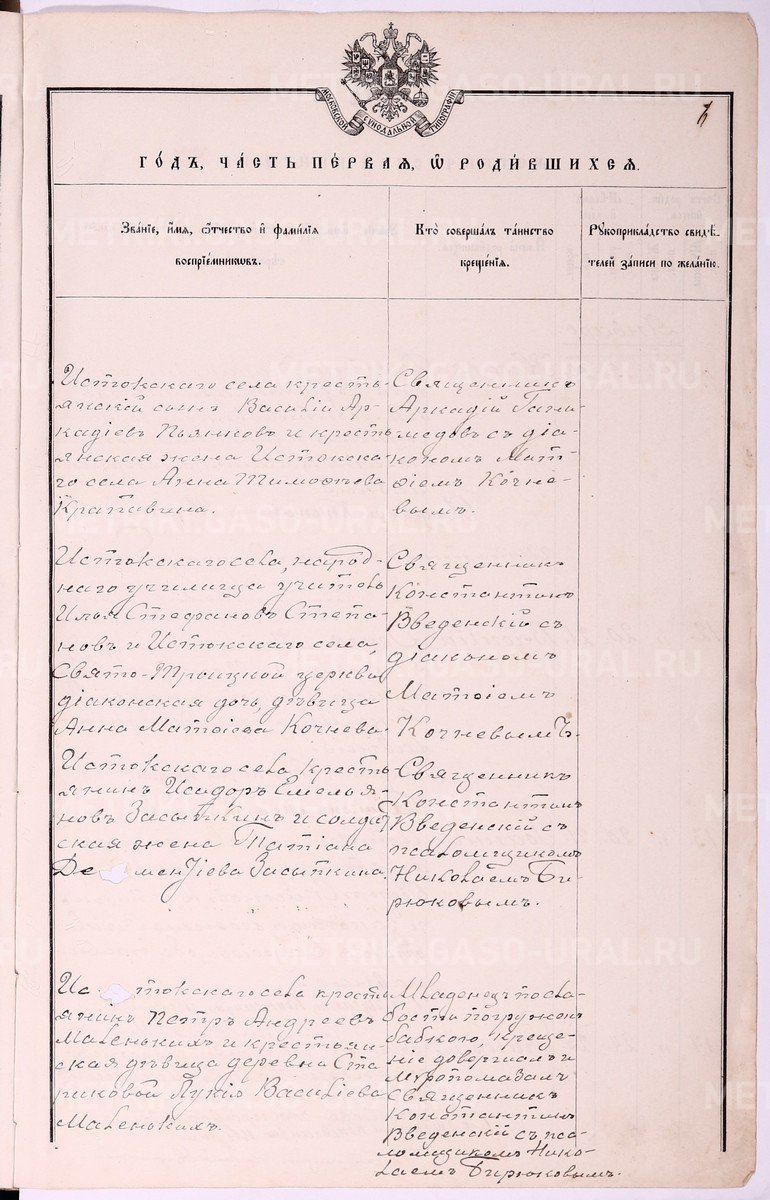 МОСКОВСКОЙ СѴНОДАЛЬНОЙ ТИПОГРАФІИ
METRIKI-GASO-URAL.RU
ГО́ДЪ, ЧА́СТЬ ПЕ́РВАЯ, Ѡ҆ РОДИ́ВШИХСЯ.
Зва́нїе, и҆́мя, ѻ҆́тчество и҆ фами́лїя
воспрїе́мникѡвъ.
Кто̀ соверша́лъ та́инство
креще́нїя.
Рꙋкоприкла́дство свидѣ́-
телей за́писи по жела́нїю.
Истокскаго села кресть-
янскій сынъ Василій Ар-
кадіевъ Пьянковъ и кресть-
янская жена Истокска-
го села Анна Тимоѳѣева
Крапивина.
Священникъ
Аркадій Гани-
медовъ съ діа-
кономъ Мат-
ѳіемъ Кочне-
вымъ.
Истокскаго села, народ-
наго училища учитель
Илья Стефановъ Степа-
новъ и Истокскаго села,
Свято-Троицкой церкви
діаконская дочь, дѣвица
Анна Матѳіева Кочнева
Священникъ
Константинъ
Введенскій съ
діакономъ
Матѳіемъ
Кочневымъ.
Истокскаго села, кресть-
янинъ Исидоръ Емелья-
новъ Засыпкинъ и солдат-
ская жена Татіана
Де ментіева Засыпкина.
Священникъ
Константинъ
Введенскій съ
псаломщикомъ
Николаемъ Би-
рюковымъ.
Ис токскаго села кресть-
янинъ Петръ Андреевъ
Маленькихъ и крестьян-
ская дѣвица деревни Ста-
риковой Лукія Василіева
Маленькихъ.
Младенецъ по сла-
бости погруженъ
бабкою, креще-
ніе довершилъ и
мѵропомазалъ
священникъ
Константинъ
Введенскій съ пса-
ломщикомъ Нико-
лаемъ Бирюковымъ.